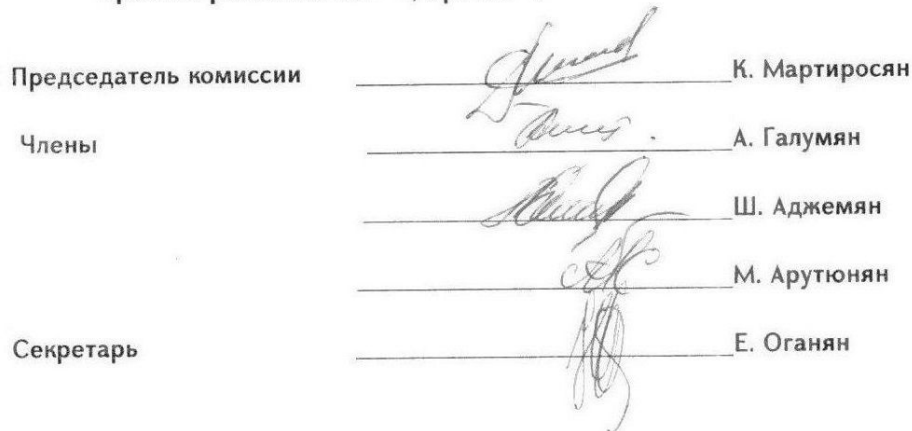 Председатель комиссии К. Мартиросян
Члены А. Галумян
Ш. Аджемян
М. Арутюнян
Секретарь Е. Оганян